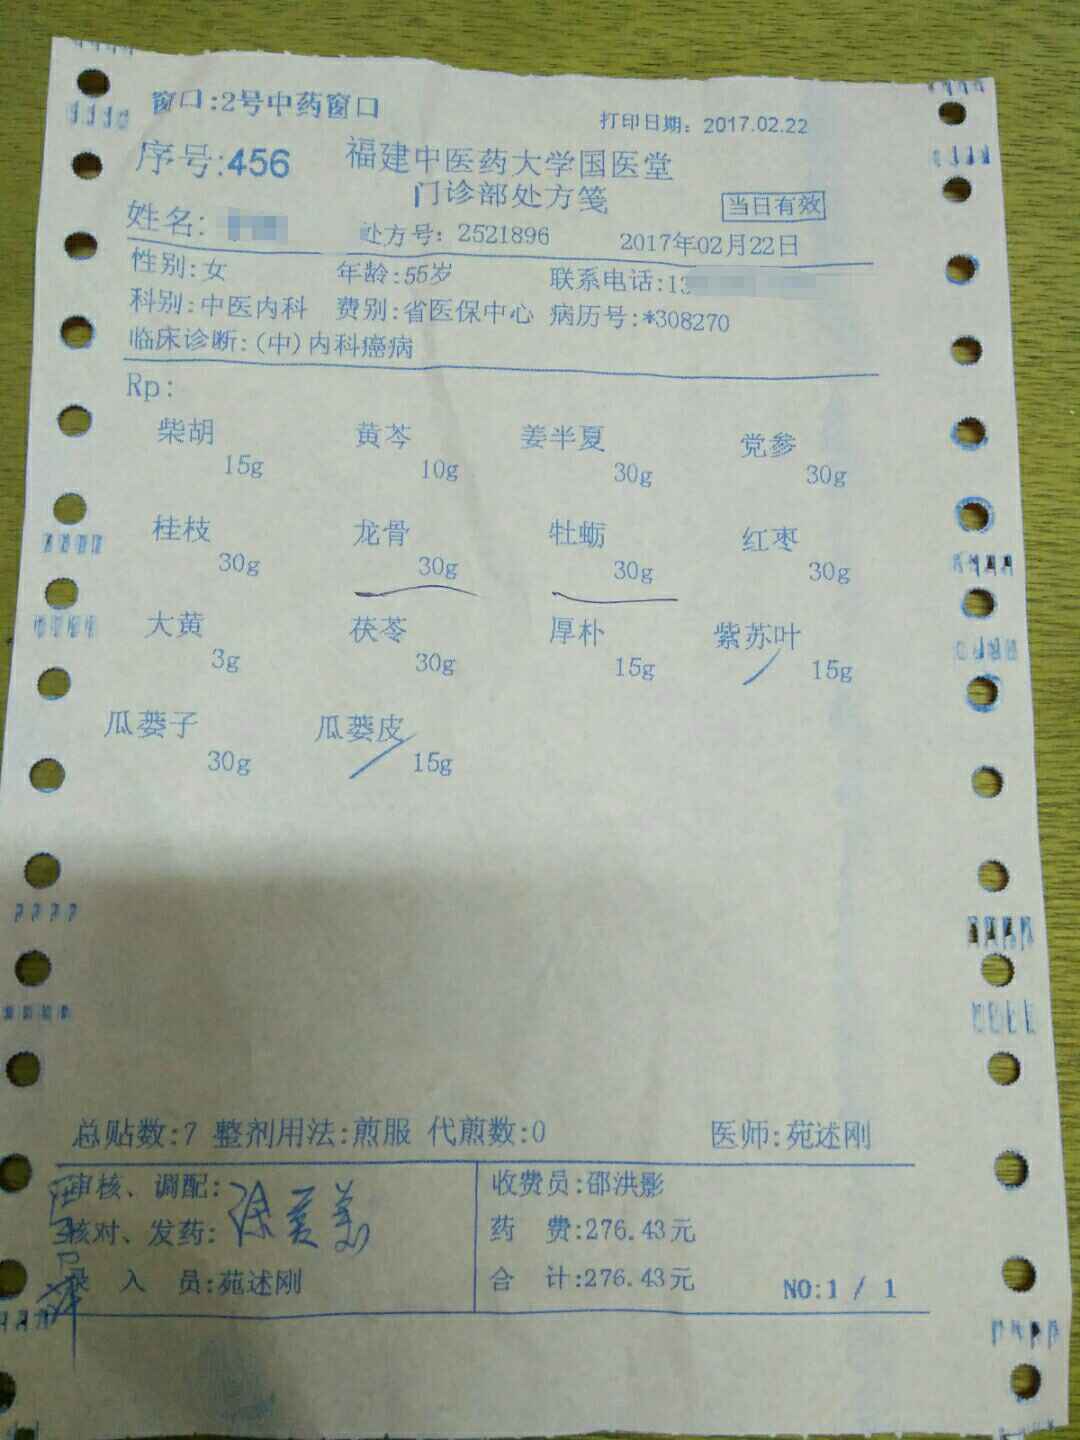 窗口:2号中药窗口
打印日期: 2017.02.22
序号:456 福建中医药大学国医堂
门诊部处方笺
当日有效
姓名: 处方号: 2521896 2017年02月22日
性别:女 年龄:55岁 联系电话:13
科别:中医内科 费别:省医保中心 病历号:*308270
临床诊断:(中)内科癌病
Rp:
柴胡 黄芩 姜半夏 党参
15g 10g 30g 30g
桂枝 龙骨 牡蛎 红枣
30g 30g 30g 30g
大黄 茯苓 厚朴 紫苏叶
3g 30g 15g 15g
瓜蒌子 瓜蒌皮
30g 15g
总贴数:7 整剂用法:煎服 代煎数:0 医师:苑述刚
审核、调配: 收费员:邵洪影
核对、发药: 药 费:276.43元
录 入 员:苑述刚 合 计:276.43元 NO:1 / 1